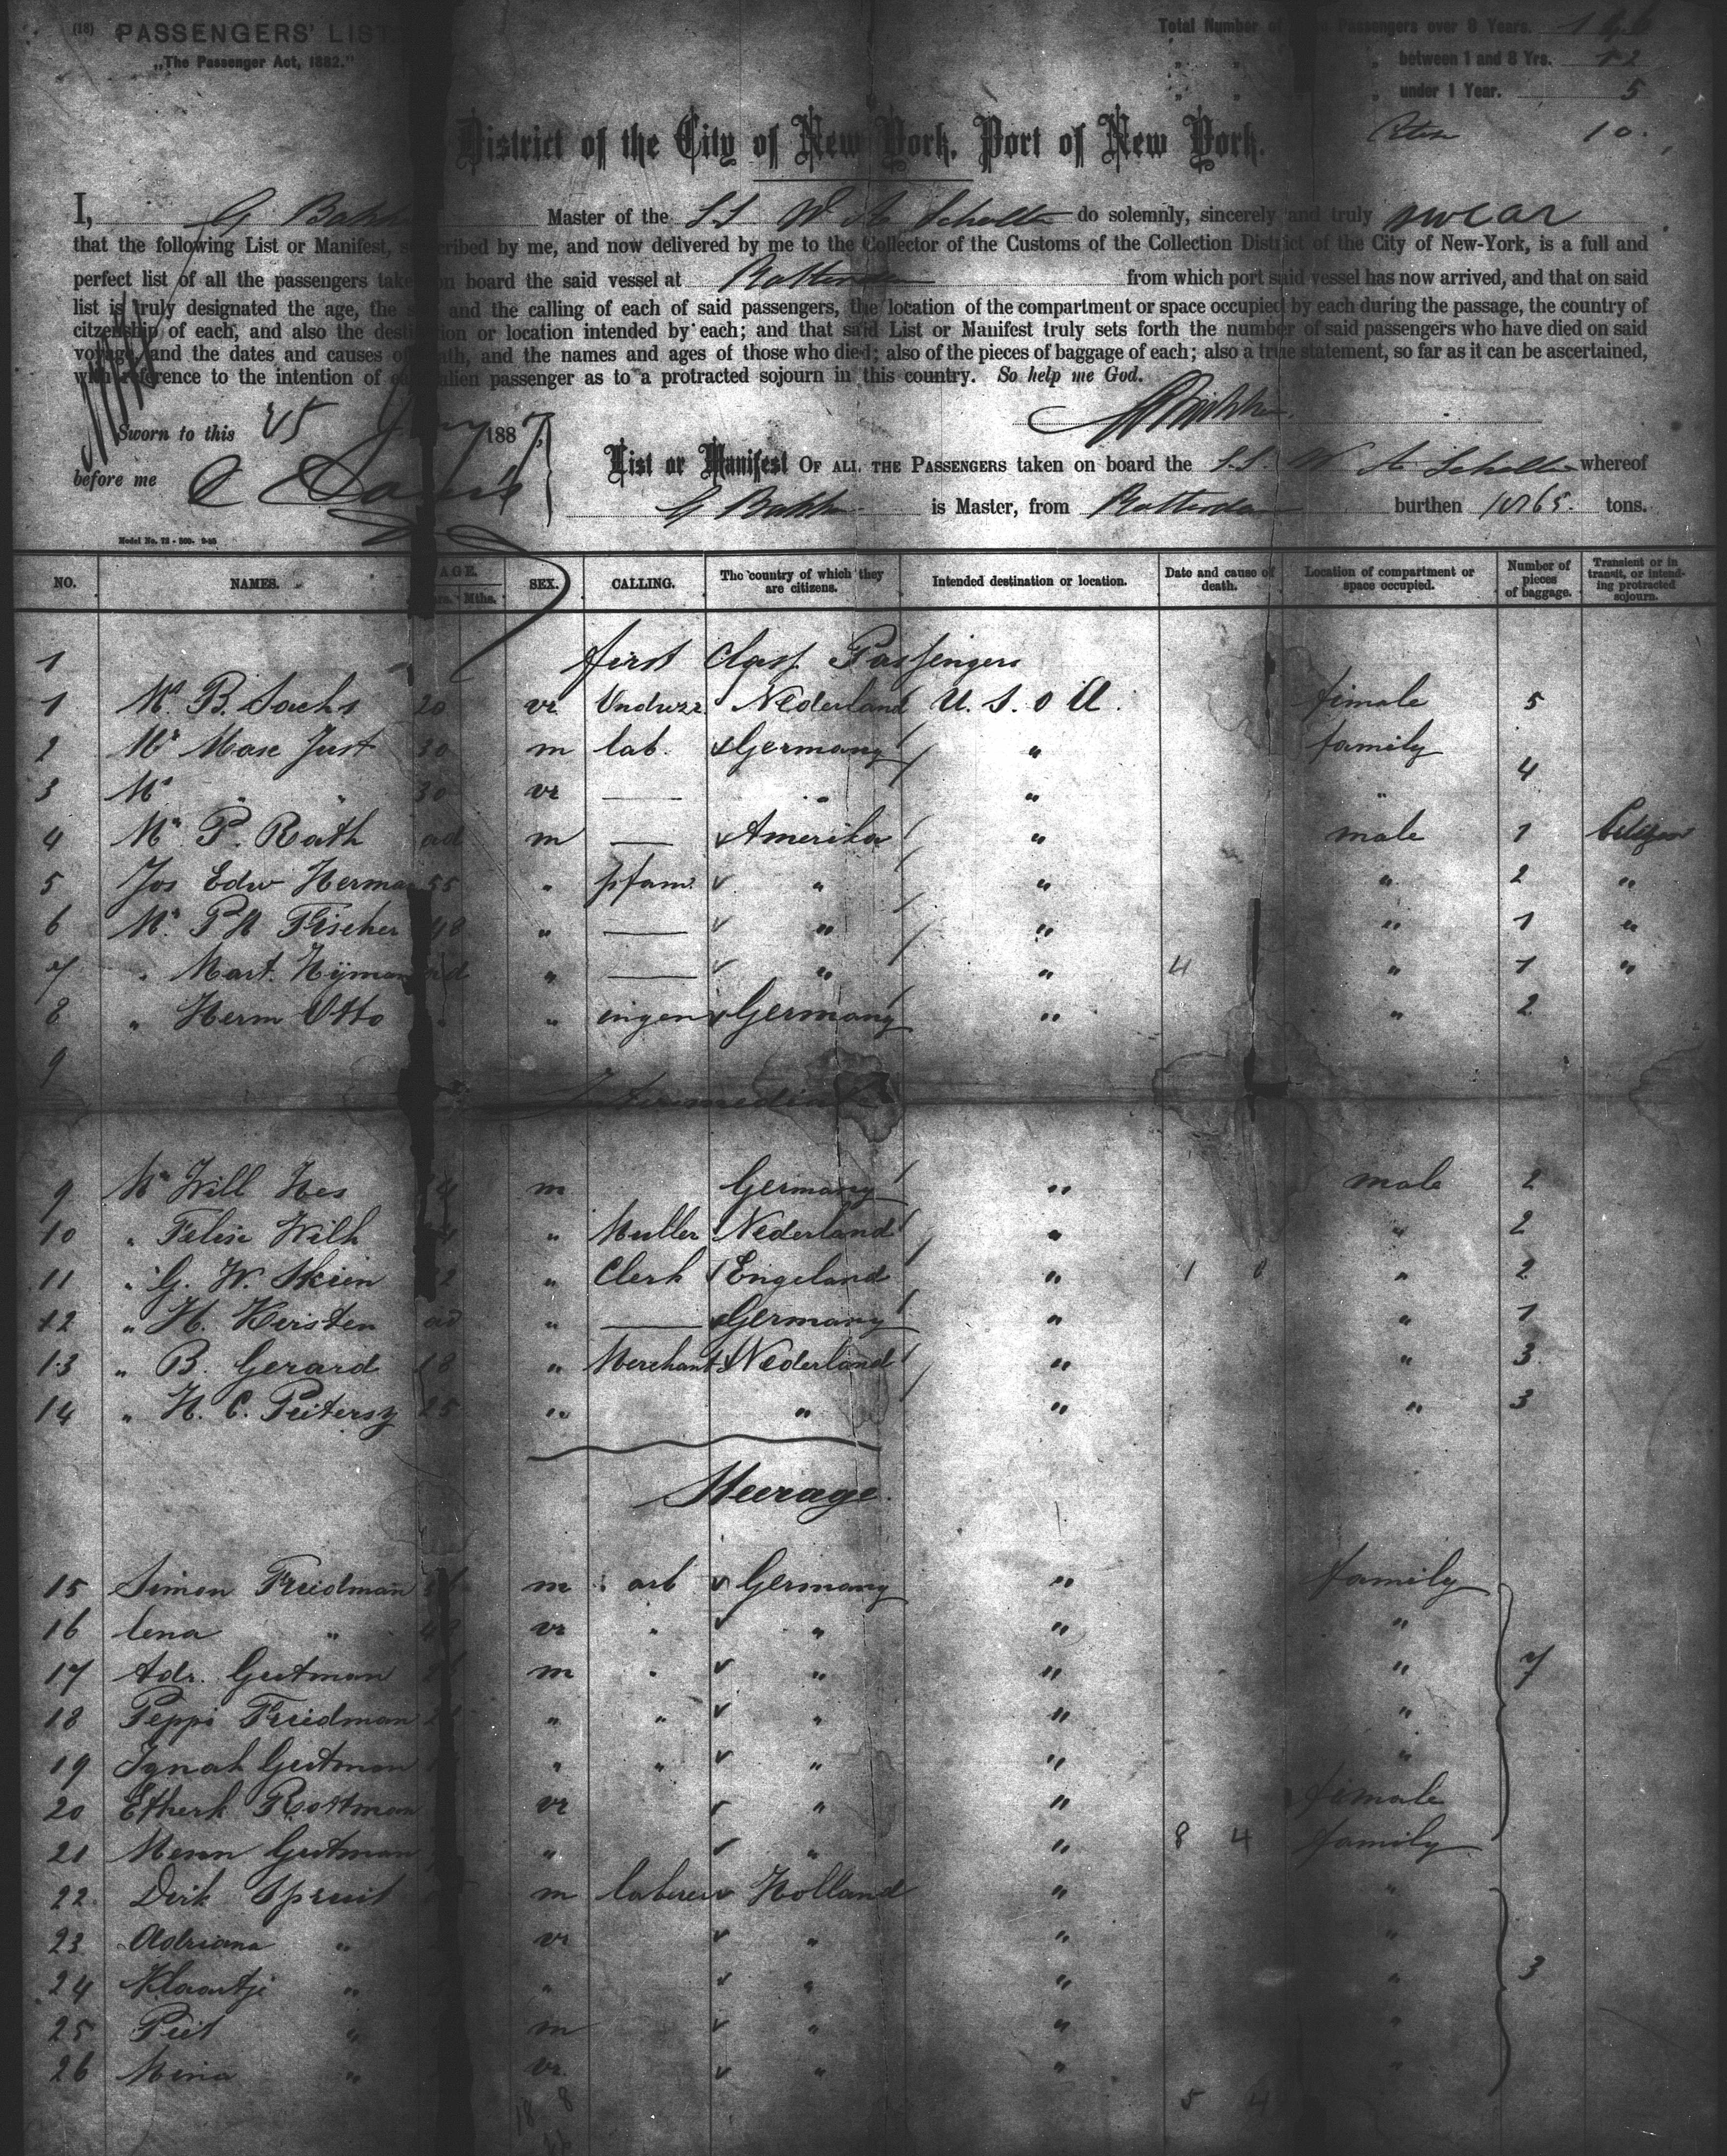 (18) PASSENGERS' LIST
„The Passenger Act, 1882."
Total Number of Passengers over 8 Years.
„ „ „ between 1 and 8 Yrs. 12
„ „ „ under 1 Year. 5
10.
District of the City of New York, Port of New York.
I, G Bakker Master of the S.S. W A Scholten do solemnly, sincerely and truly swear
that the following List or Manifest, subscribed by me, and now delivered by me to the Collector of the Customs of the Collection District of the City of New-York, is a full and
perfect list of all the passengers taken on board the said vessel at Rotterdam from which port said vessel has now arrived, and that on said
list is truly designated the age, the sex and the calling of each of said passengers, the location of the compartment or space occupied by each during the passage, the country of
citzenship of each, and also the destination or location intended by each; and that said List or Manifest truly sets forth the number of said passengers who have died on said
voyage, and the dates and causes of death, and the names and ages of those who died; also of the pieces of baggage of each; also a true statement, so far as it can be ascertained,
with reference to the intention of each alien passenger as to a protracted sojourn in this country. So help me God.
Sworn to this 25 1887
before me
List or Manifest OF ALL THE PASSENGERS taken on board the S.S. W A Scholten whereof
G Bakker is Master, from Rotterdam burthen tons.
NO. NAMES. AGE. Yrs. Mths. SEX. CALLING. The country of which they are citizens. Intended destination or location. Date and cause of death. Location of compartment or space occupied. Number of pieces of baggage. Transient or in transit, or intending protracted sojourn.
1 first Class Passengers
1 Ms. B. Sachs 20 vr Nederland U. S. o A. female 5
2 Mr Max Just 30 m lab. Germany " family 4
3 Ms " " 30 vr — " " "
4 Mr P. Rath ad m — Amerika " male 1 Citizen
5 Jos Edw Herman 55 " " " " 2 "
6 Mr. P H Fischer 48 " — " " " 1 "
7 " Mart. Hijman ad " — " " 4 " 1 "
8 " Herm Otto " " ingen Germany " " 2
9
Intermediate
9 Mr Will Hes m Germany " male 2
10 " Felix Wilh " Muller Nederland " " 2
11 " G. W. Skien " Clerk Engeland " 1 8 " 2
12 " H. Kersten ad " — Germany " " 1
13 " B. Gerard 18 " Merchant Nederland " " 3
14 " H. C. Pietersz 25 " " " " 3
Steerage.
15 Simon Friedman m arb Germany " family
16 Lena " vr " " " "
17 Adr. Gutman m " " " " 7
18 Peppi Friedman " " " " "
19 Ignat Gutman " " " " "
20 Etherk Rottman vr " " female
21 Menn Gutman " " " 8 4 family
22 Dirk Spruit m laborer Holland " "
23 Adriana " vr " " "
24 Klaartje " " " " " 3
25 Piet " m " " "
26 Mina " vr. " " "
18 8 5 4